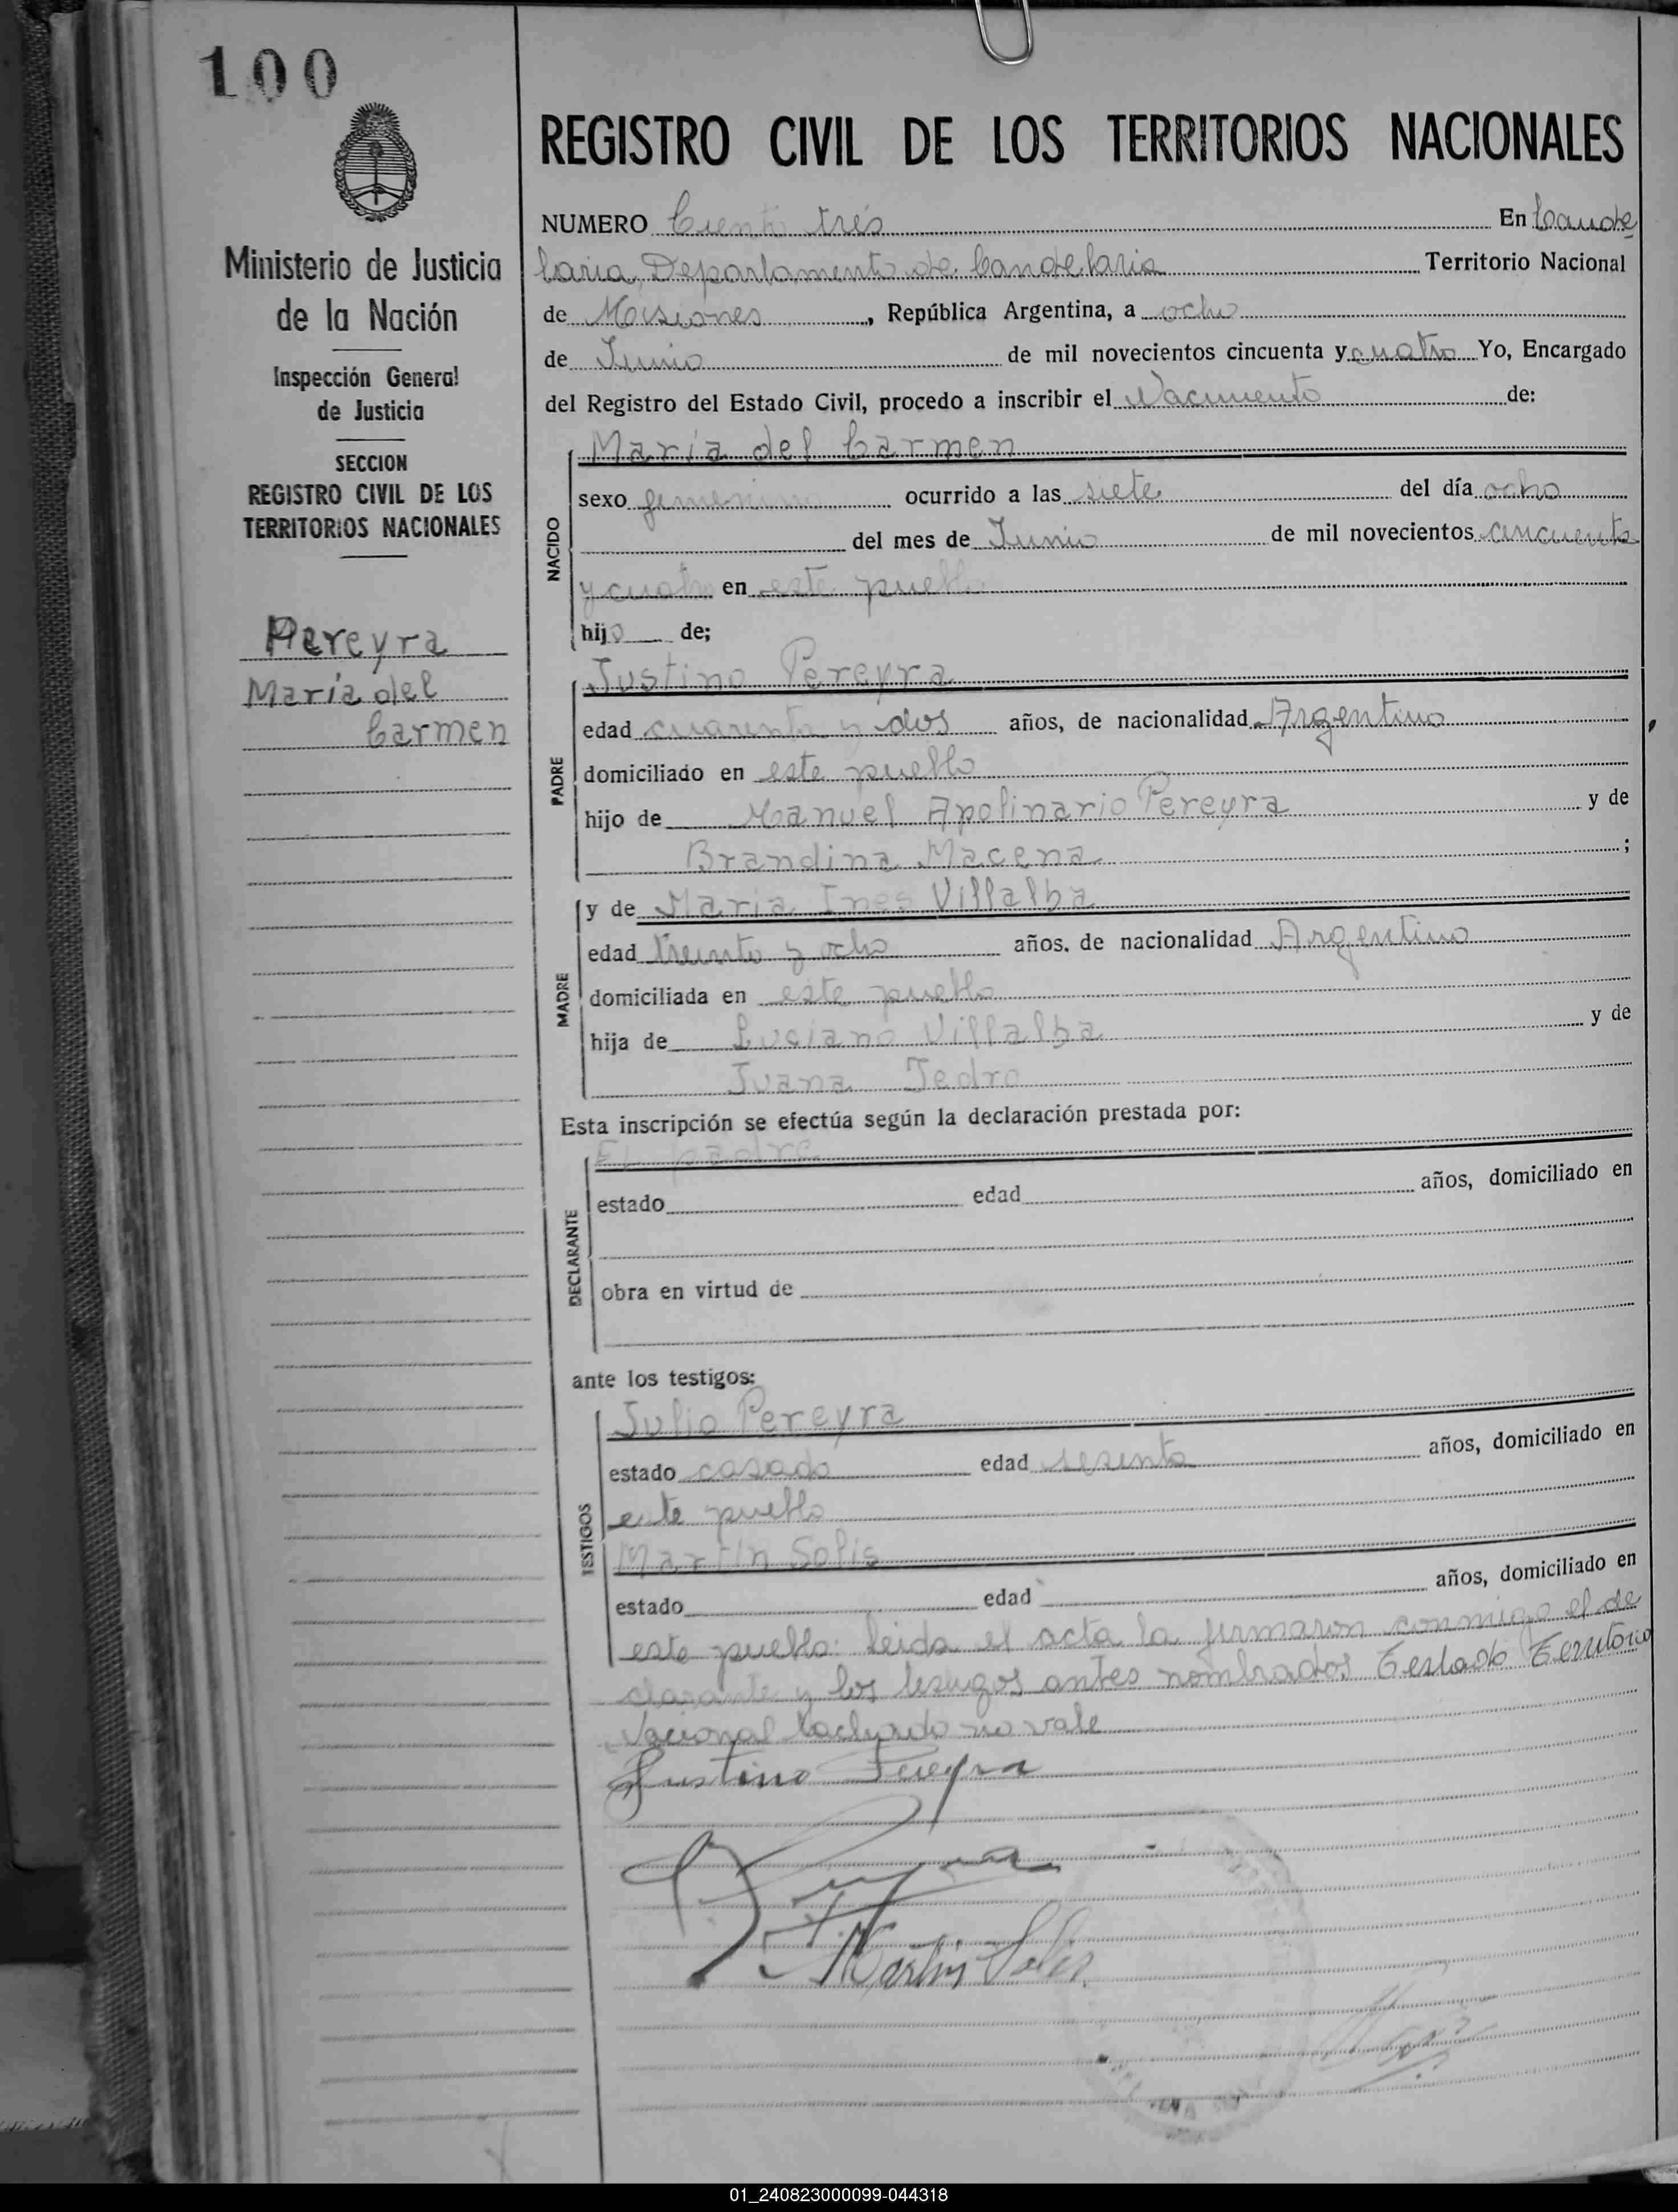 100
Ministerio de Justicia
de la Nación
Inspección General
de Justicia
SECCION
REGISTRO CIVIL DE LOS
TERRITORIOS NACIONALES
Pereyra
María del
Carmen
REGISTRO CIVIL DE LOS TERRITORIOS NACIONALES
NUMERO Ciento trés En Cande
laria, Departamento de Candelaria Territorio Nacional
de Misiones, República Argentina, a ocho
de Junio de mil novecientos cincuenta y cuatro Yo, Encargado
del Registro del Estado Civil, procedo a inscribir el Nacimiento de:
María del Carmen
NACIDO
sexo femenino ocurrido a las siete del día ocho
del mes de Junio de mil novecientos cincuenta
y cuatro en este pueblo
hija de;
Justino Pereyra
PADRE
edad cuarenta y dos años, de nacionalidad Argentino
domiciliado en este pueblo
hijo de Manuel Apolinario Pereyra y de
Brandina Macena ;
y de María Ines Villalba
MADRE
edad treinta y ocho años, de nacionalidad Argentina
domiciliada en este pueblo
hija de Luciano Villalba y de
Juana Jedro
Esta inscripción se efectúa según la declaración prestada por:
El padre
DECLARANTE
estado edad años, domiciliado en
obra en virtud de
ante los testigos:
Julio Pereyra
TESTIGOS
estado casado edad sesenta años, domiciliado en
este pueblo
Martín Solis
estado edad años, domiciliado en
este pueblo: leida el acta la firmaron conmigo el de
clarante y los testigos antes nombrados Testado Territorio
Nacional tachado no vale
Justino Pereyra
Martin Solis
01_240823000099-044318